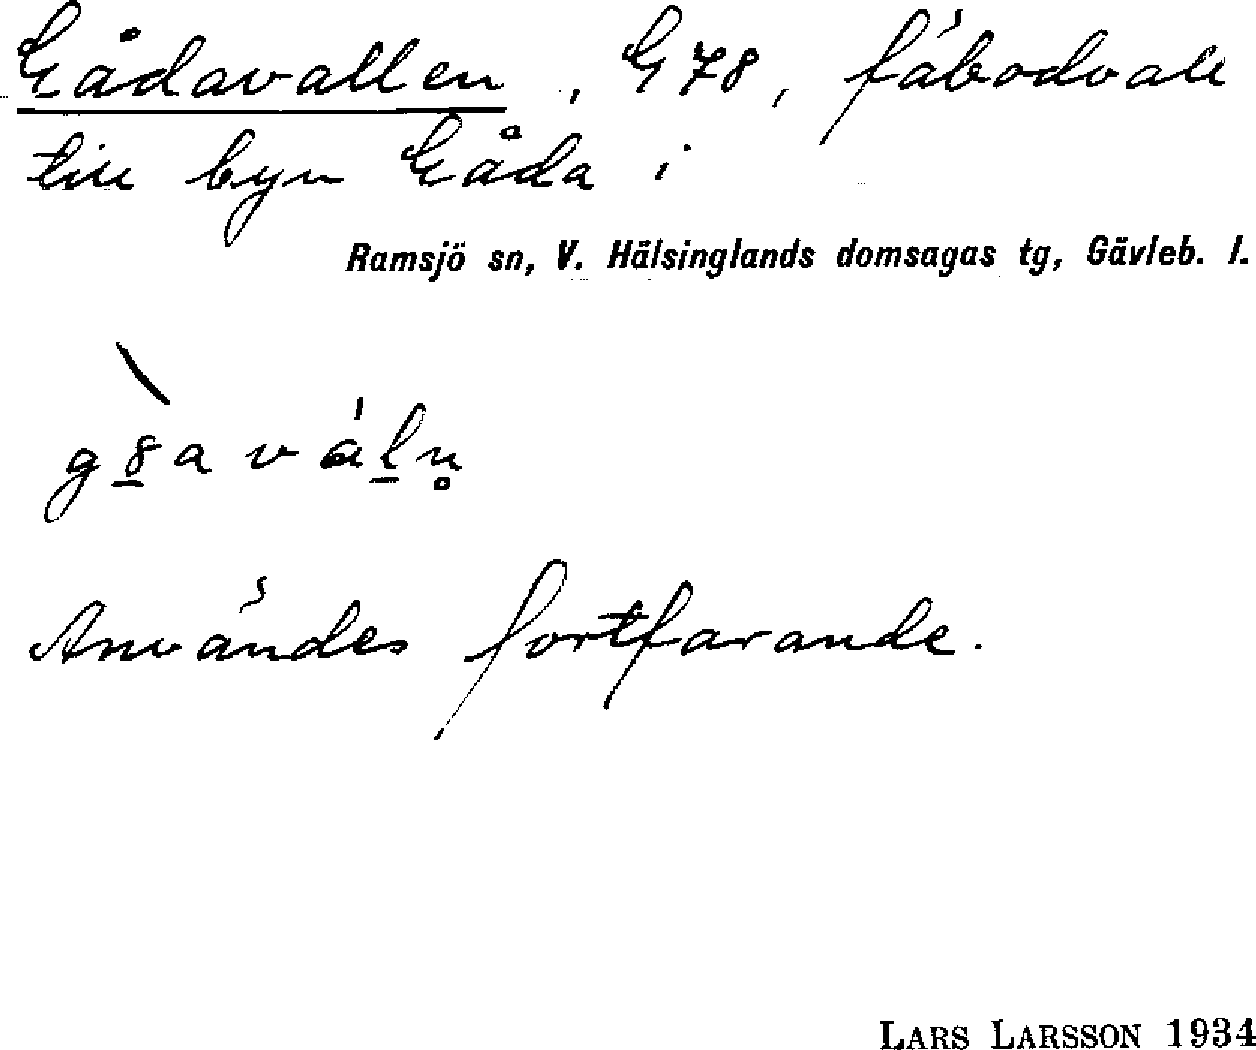 Gådavallen, G 78, fäbodvall
till byn Gåda i
Ramsjö sn, V. Hälsinglands domsagas tg, Gävleb. l.
Användes fortfarande.
LARS LARSSON 1934